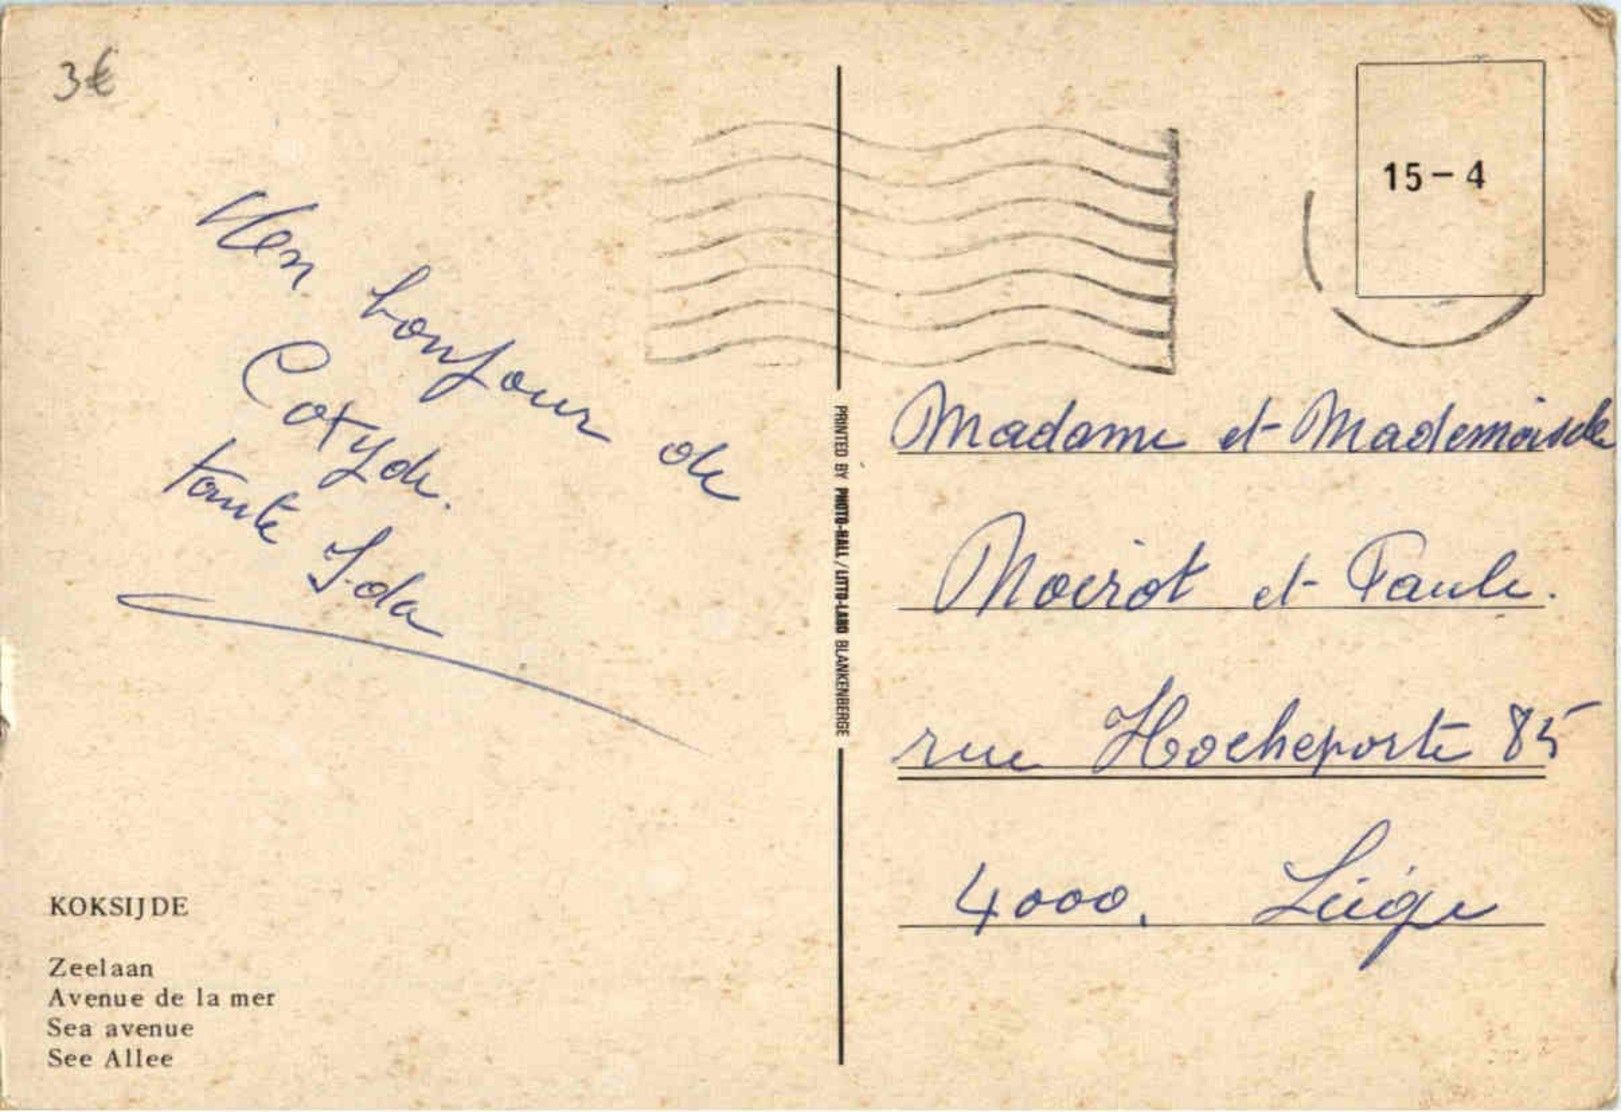 3€
15-4
Un bonjour de
Coxyde.
tante Ida
Madame et Mademoiselle
Noirot et Paule.
rue Hocheporte 85
4000. Liège
PRINTED BY PHOTO-HALL / LITTO-LAND BLANKENBERGE
KOKSIJDE
Zeelaan
Avenue de la mer
Sea avenue
See Allee